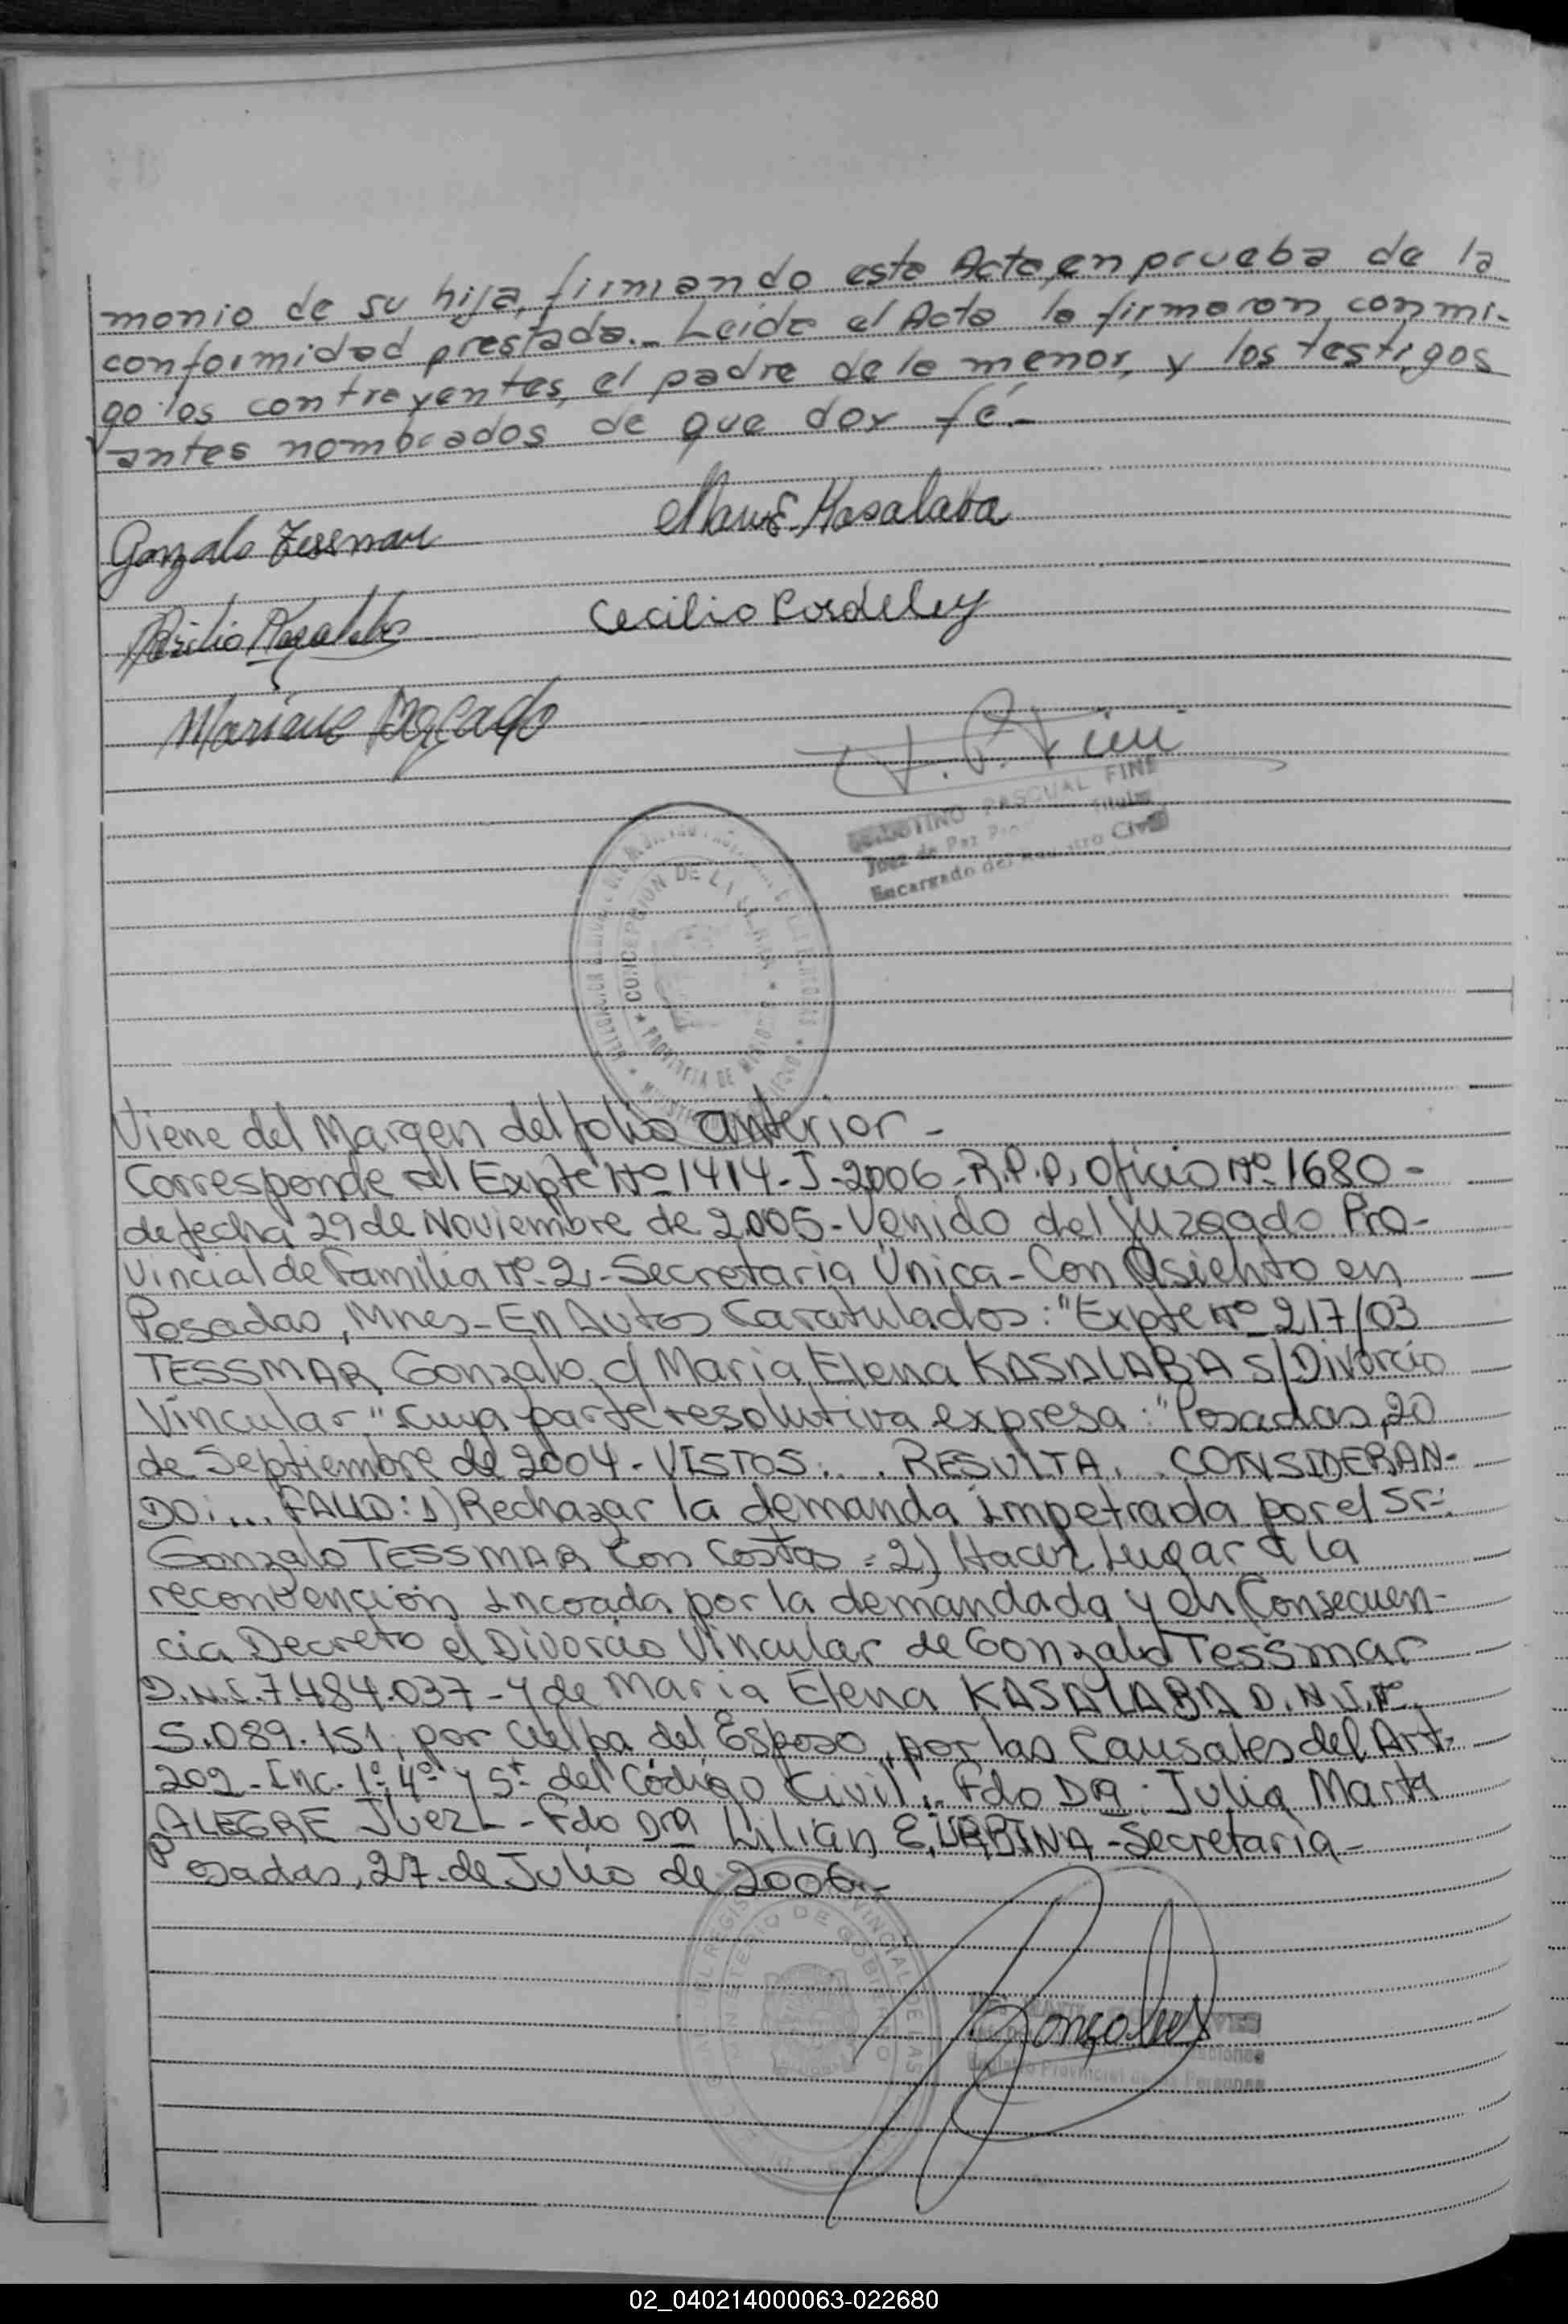 monio de su hija, firmando esta Acta, en prueba de la
conformidad prestada.- Leida el Acta la firmaron conmi-
go los contrayentes, el padre de la menor, y los testigos
antes nombrados de que doy fé.-
Gonzalo Tessmar
Kasalaba
Cecilio Cordeley
Mariano
PASCUAL FINI
Juez de Paz
Encargado del Registro Civil
CONCEPCION DE LA SIERRA
PROVINCIA DE MISIONES
Viene del Margen del folio anterior -
Corresponde al Expte Nº 1414-J-2006-R.P.P, Oficio Nº 1680-
de fecha 29 de Noviembre de 2005-Venido del Juzgado Pro-
vincial de Familia Nº-2,-Secretaria Única-Con Asiento en
Posadas, Mnes-En Autos Caratulados: "Expte Nº 217/03
TESSMAR Gonzalo, c/ Maria Elena KASALABA S/Divorcio
Vincular", cuya parte resolutiva expresa: "Posadas, 20
de Septiembre de 2004-VISTOS... RESULTA... CONSIDERAN-
DO:... FALLO: 1) Rechazar la demanda impetrada por el Sr:
Gonzalo TESSMAR Con Costas = 2) Hacer Lugar a la
reconvención incoada por la demandada y en Consecuen-
cia Decreto el Divorcio Vincular de Gonzalo Tessmar
D.N.I. 7.484.037-y de Maria Elena KASALABA D.N.I. Nº
5.089.151, por Culpa del Esposo, por las Causales del Art.
202-Inc. 1º 4º y 5º del Código Civil.. Fdo Dra: Julia Marta
ALEGRE Juez - Fdo Dra Lilian E, URBINA-Secretaria-
Posadas, 27-de Julio de 2006.-
MINISTERIO DE GOBIERNO
Registro Provincial de las Personas
02_040214000063-022680